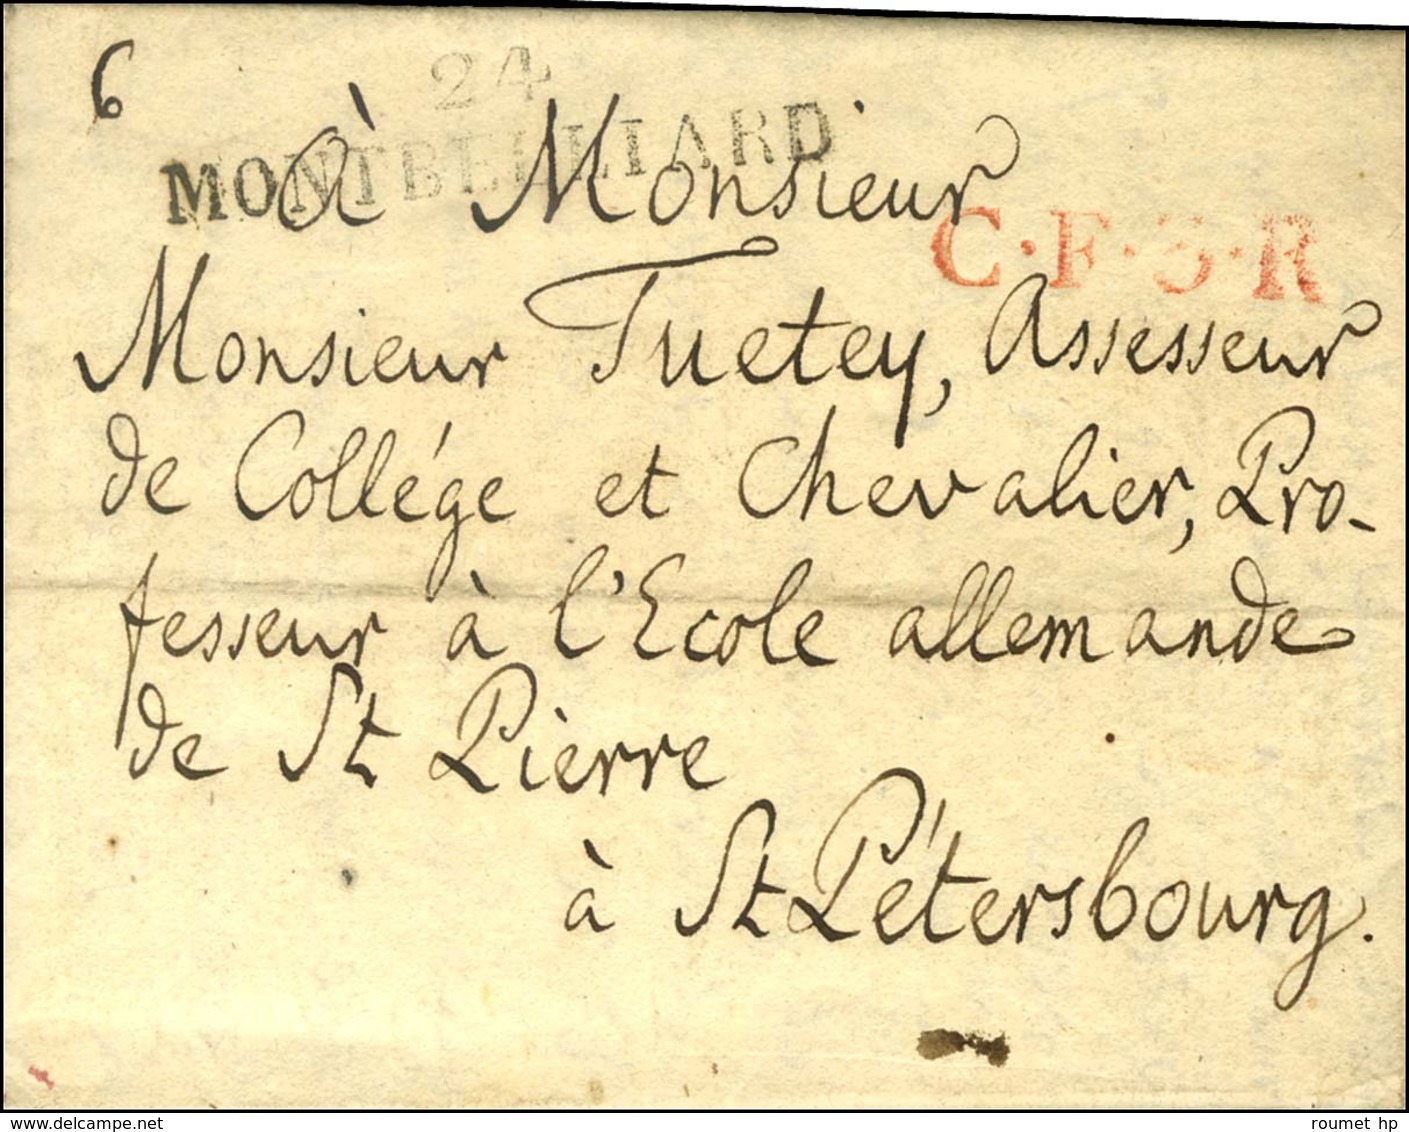 6
24
MONTBELLIARD
à Monsieur
C.F.3.R
Monsieur Tuetey, Assesseur
de Collége et Chevalier, Pro-
fesseur à l'Ecole allemande
de St Pierre
à St Pétersbourg.
roumet hp